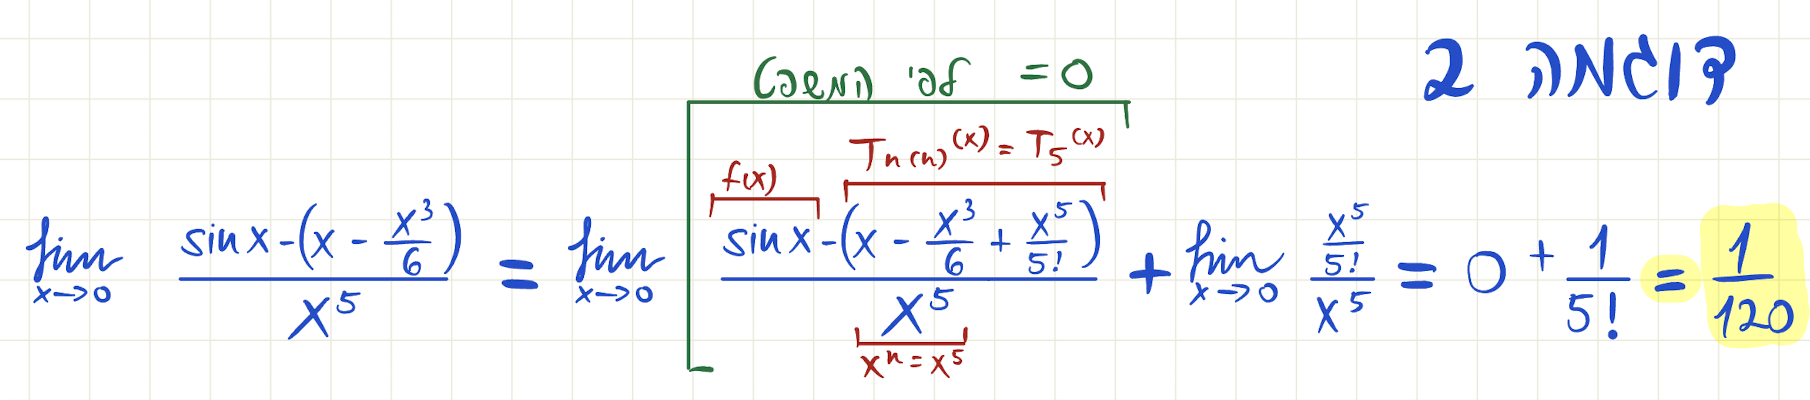 דוגמה 2
לפי המשפט = 0
f(x)
T_{n(n)}(x) = T_5(x)
lim_{x→0} (sin x - (x - x^3/6))/x^5 = lim_{x→0} (sin x - (x - x^3/6 + x^5/5!))/x^5 + lim_{x→0} (x^5/5!)/x^5 = 0 + 1/5! = 1/120
x^n = x^5